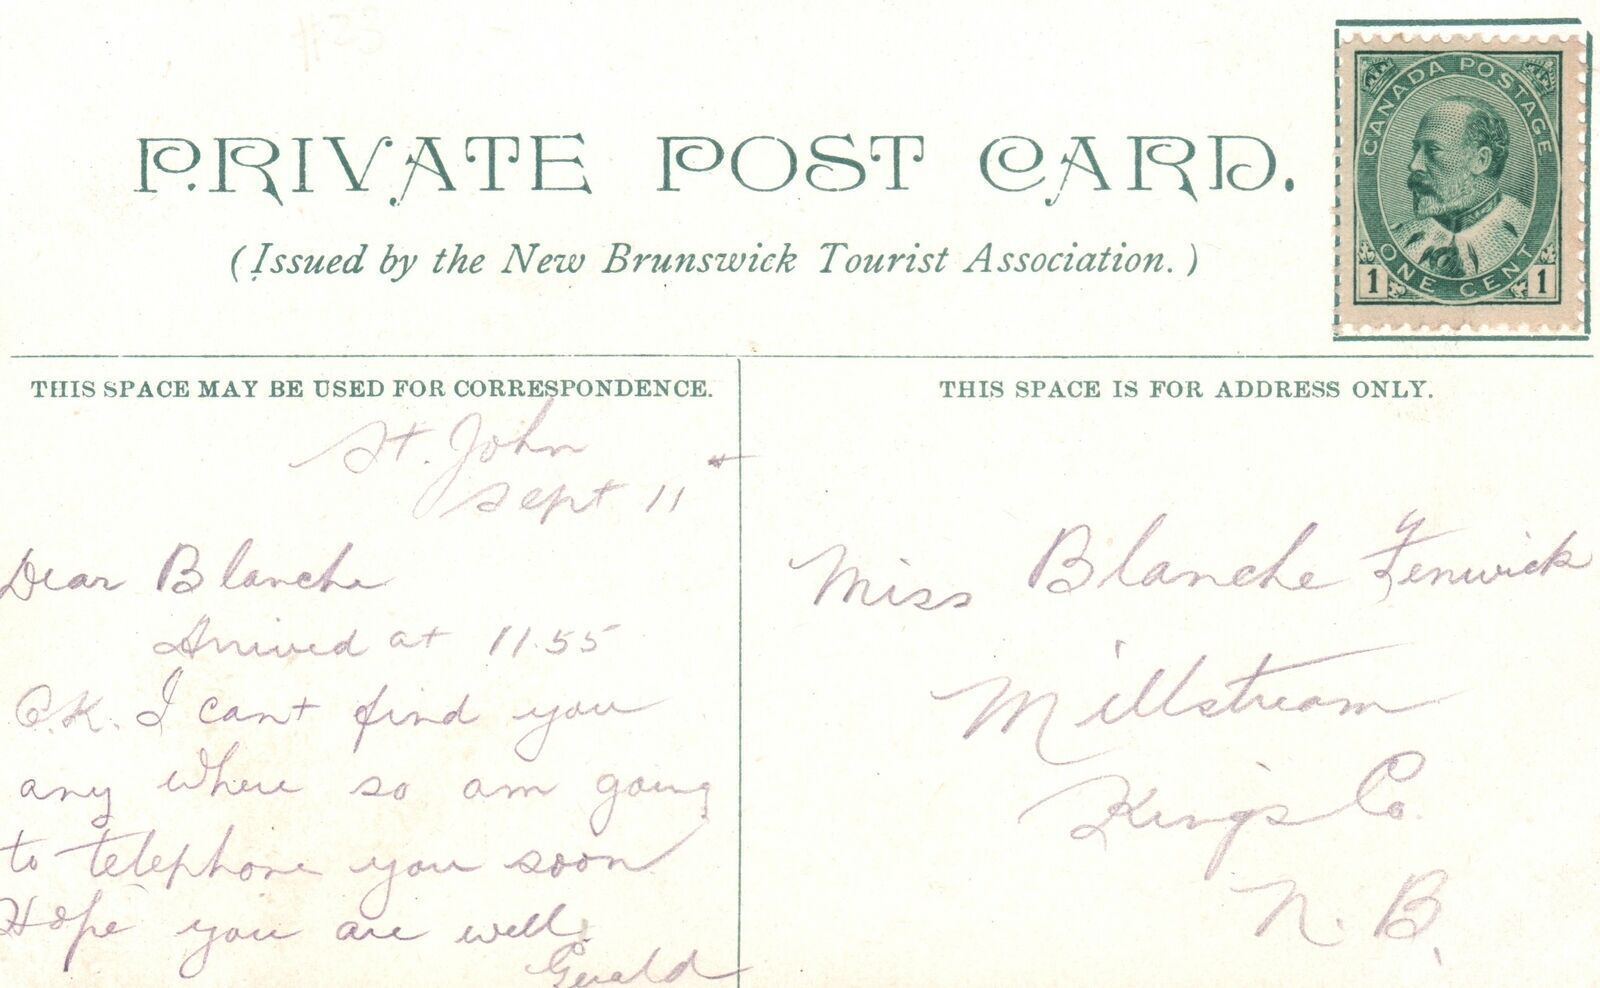 PRIVATE POST CARD.
(Issued by the New Brunswick Tourist Association.)
CANADA POSTAGE
ONE CENT
1 1
THIS SPACE MAY BE USED FOR CORRESPONDENCE.
St. John
Sept 11
Dear Blanche
Arrived at 11.55
O.K. I cant find you
any where so am going
to telephone you soon
Hope you are well.
Gerald
THIS SPACE IS FOR ADDRESS ONLY.
Miss Blanche Fenwick
Millstream
Kings Co.
N. B.